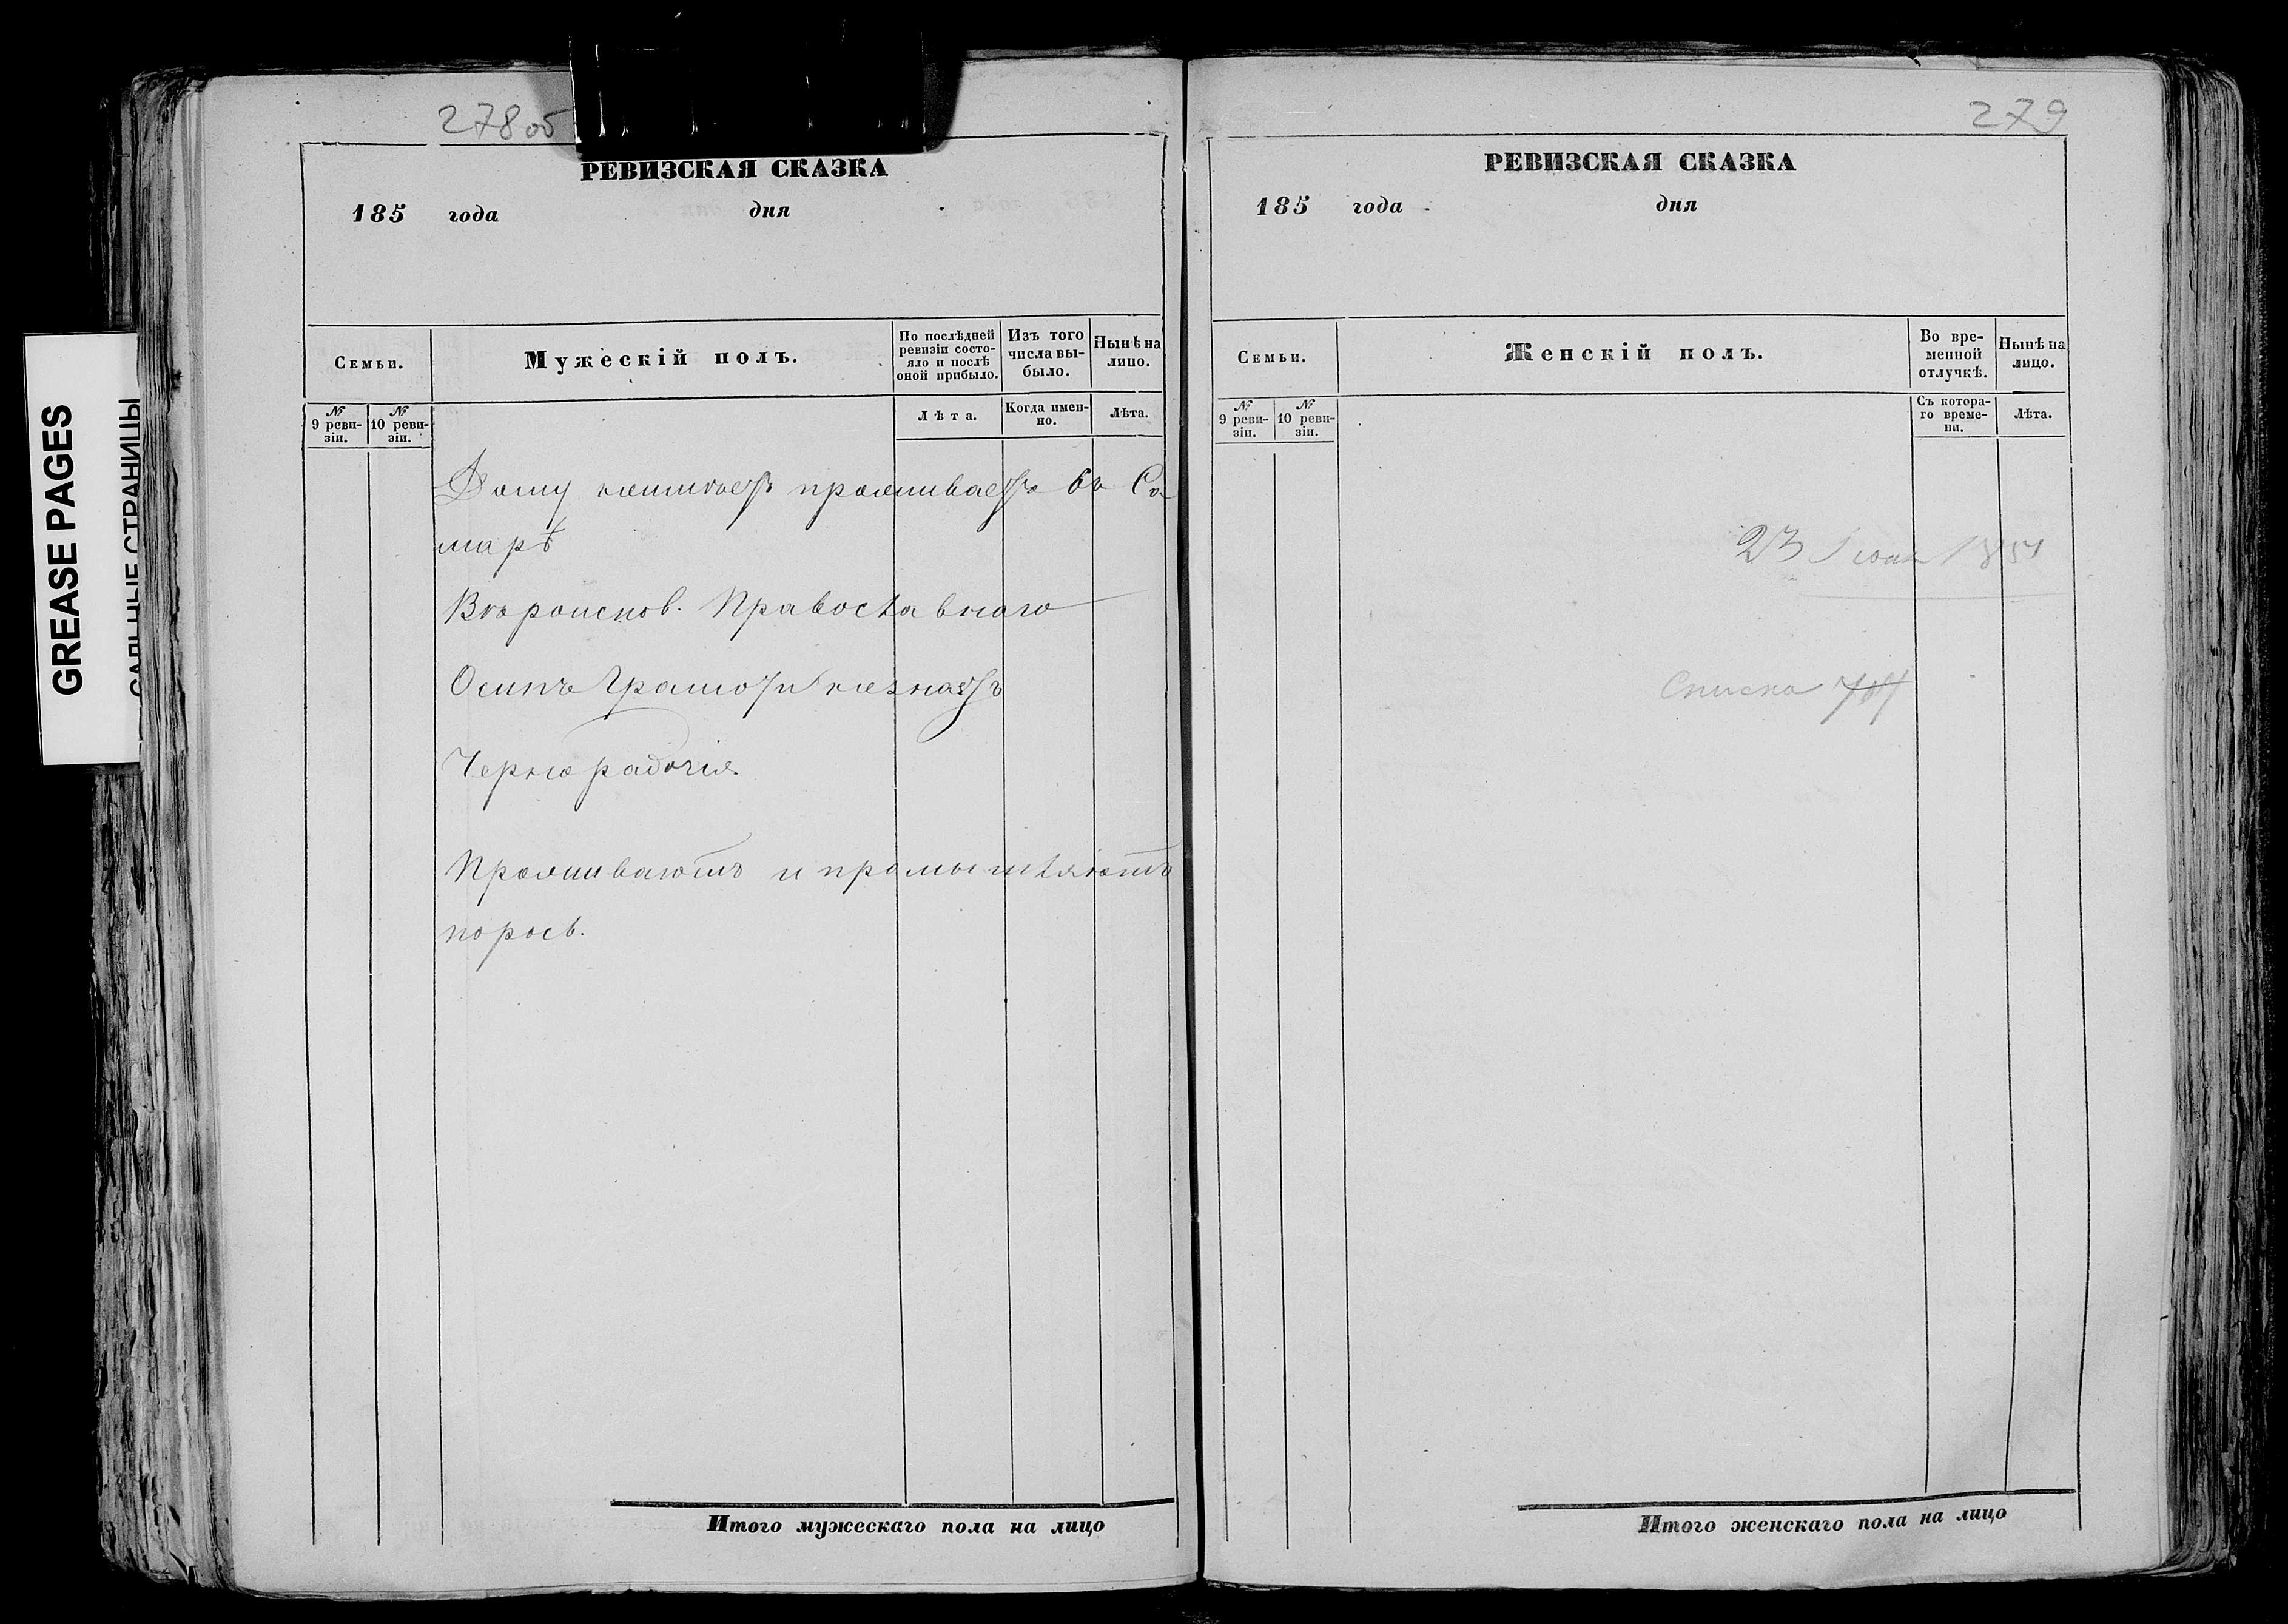 GREASE PAGES
САЛЬНЫЕ СТРАНИЦЫ
278об
РЕВИЗСКАЯ СКАЗКА
185 года дня
Семьи.
Мужескій полъ.
По послѣдней ревизіи состояло и послѣ оной прибыло.
Изъ того числа выбыло.
Нынѣ на лицо.
№ 9 ревизіи.
№ 10 ревизіи.
Лѣта.
Когда именно.
Лѣта.
Дому неимѣетъ проживаетъ въ Са
марѣ
Вѣроиспов. Православнаго
Осипъ Грамоти незнаетъ
Чернорабочія
Проживаютъ и промышляютъ
порось.
Итого мужескаго пола на лицо
279
РЕВИЗСКАЯ СКАЗКА
185 года дня
Семьи.
Женскій полъ.
Во временной отлучкѣ.
Нынѣ на лицо.
№ 9 ревизіи.
№ 10 ревизіи.
Съ котораго времени.
Лѣта.
23
Списка
Итого женскаго пола на лицо